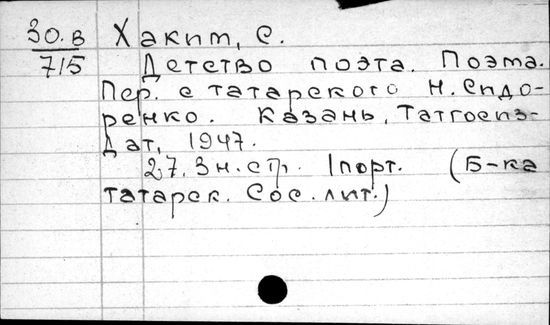 30.в Хаким, С.
715 Детство поэта. Поэма.
Пер. с татарского Н. Сидо-
ренко. Казань, Татгосиз-
дат, 1947.
27. 3 н. стр. 1 порт. (Б-ка
татарск. сов. лит.)